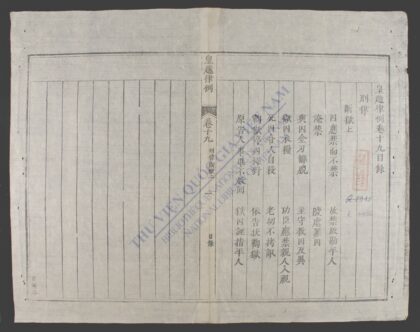 皇越律例卷十九目錄
刑律
斷獄上
囚應禁而不禁 故禁故勘平人
淹禁 陵虐罪囚
與囚金刃解脫 主守教囚反異
獄囚衣糧 功臣應禁親人入視
死囚令人自殺 老幼不拷訊
鞫獄停囚待對 依告狀鞫獄
原告人事畢不放回 獄囚誣指平人
皇越律例 卷十九 目錄
THƯ VIỆN QUỐC GIA VIỆT NAM
BIBLIOTHÈQUE NATIONALE DU VIETNAM
NATIONAL LIBRARY OF VIETNAM